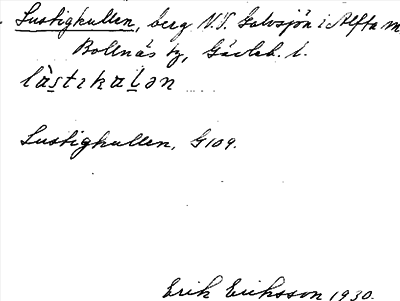 Lustigkullen, berg N.V. Galvsjön i Alfta
Bollnäs tg, Gävleb. l.
lùstɩkaḷən
Lustigkullen, G109.
Erik Eriksson 1930.